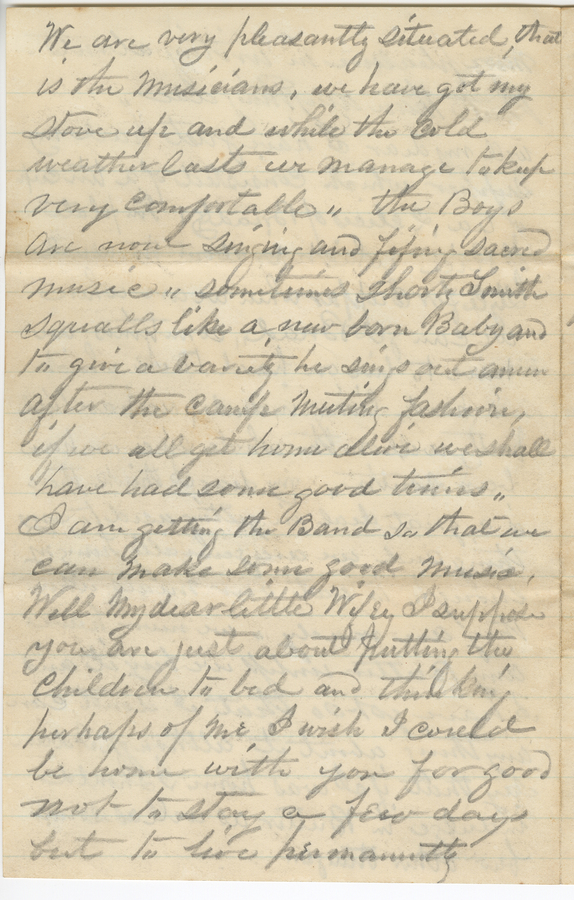 We are very pleasantly situated, that
is the Musicians, we have got my
stove up and while the cold
weather lasts we manage to keep
very comfortable„ the Boys
are now singing and fifing sacred
music„ sometimes Shorty Smith
squalls like a new born Baby and
to give a variety he sings out amen
after the camp Meeting fashion,
if we all get home alive we shall
have had some good times„
I am getting the Band so that we
can make some good music,
Well My dear little Wifey I suppose
you are just about putting the
Children to bed and thinking
perhaps of me I wish I could
be home with you for good
not to stay a few days
but to live permanently